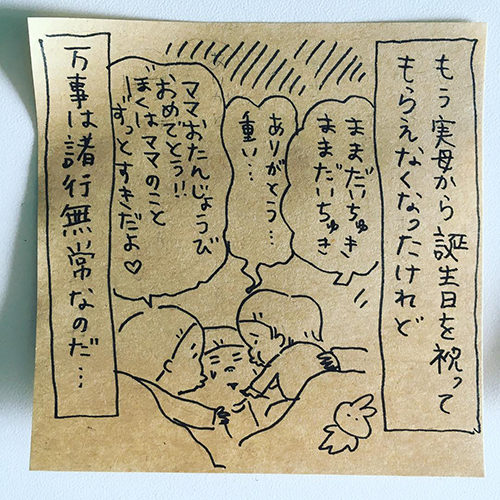 もう実母から誕生日を祝って
もらえなくなったけれど
ままだいちゅき
ままだいちゅき
ありがとう…
重い…
ママおたんじょうび
おめでとう!!
ぼくはママのこと
ずっとすきだよ♡
万事は諸行無常なのだ…